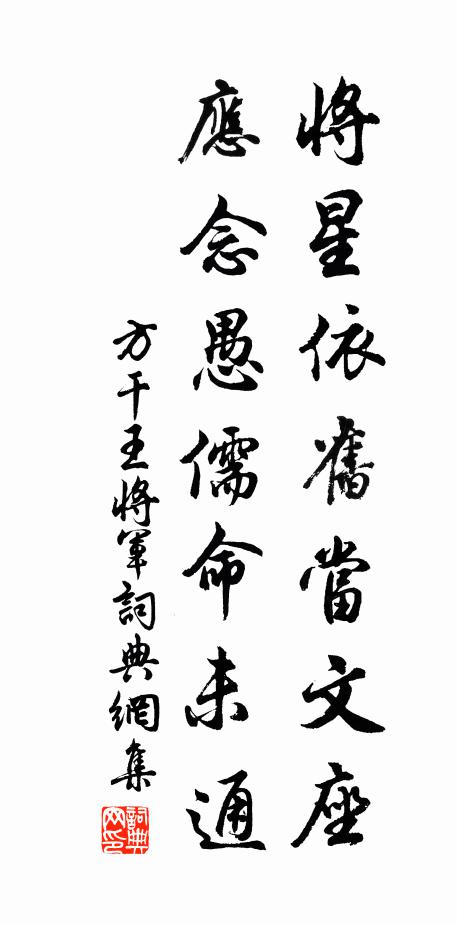 將星依舊當文座
應念愚儒命未通
方干王將軍詞典網集
詞典
网印